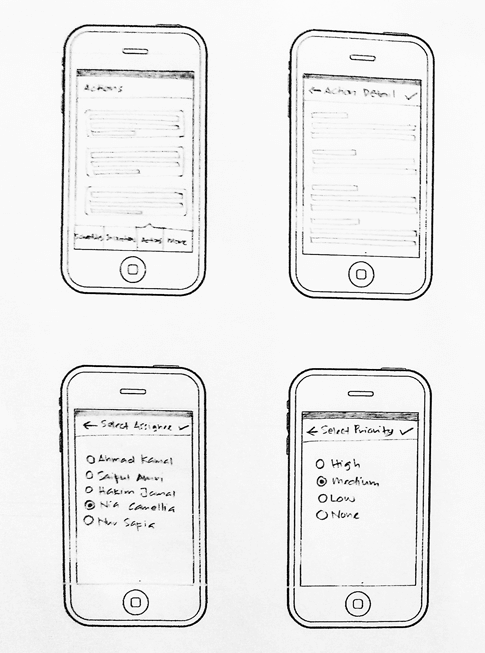 Actions
Actions More
← Action Detail ✓
← Select Assignee ✓
Ahmad Kamal
Saiful Amri
Hakim Jamal
Nia Camellia
Nur Safia
← Select Priority ✓
High
Medium
Low
None